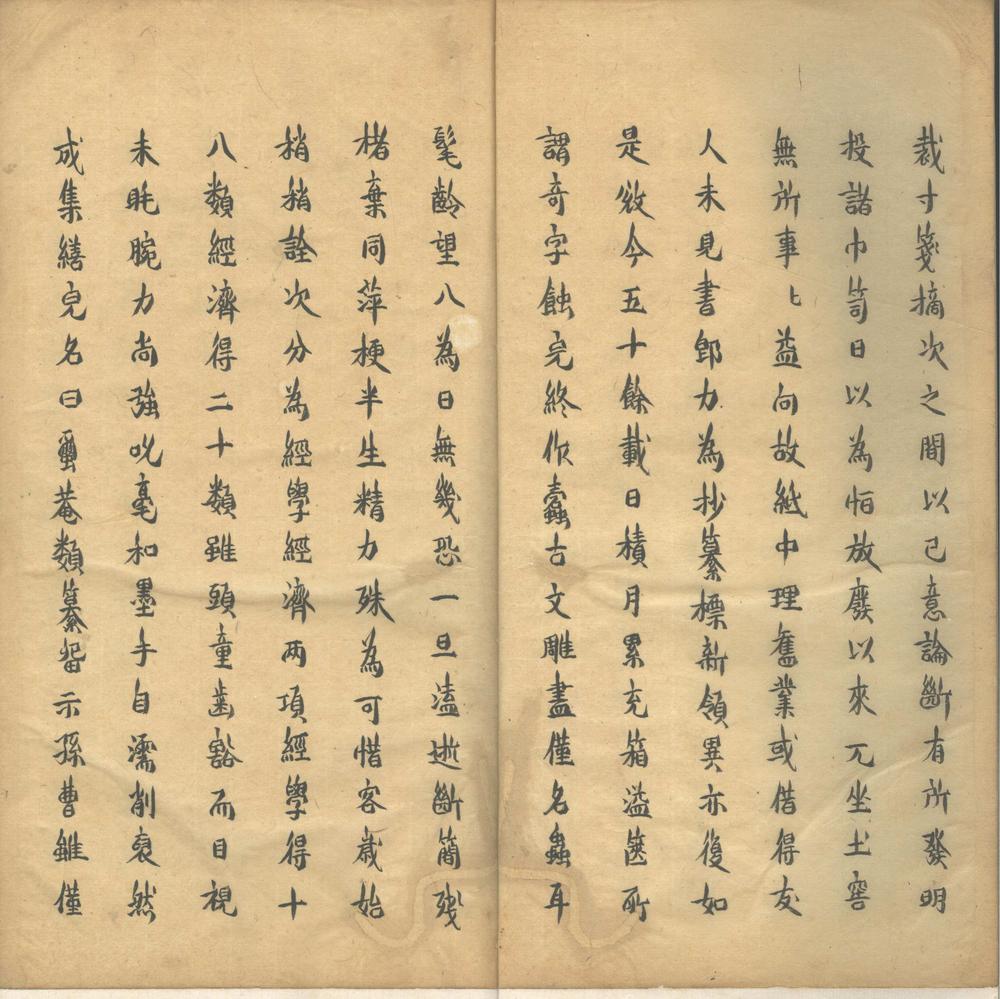 裁寸箋摘次之間以己意論斷有所發明
投諸巾笥日以為恒放廢以來兀坐土窖
無所事〻益向故紙中理舊業或借得友
人未見書即力為抄纂標新領異亦復如
是致今五十餘載日積月累充箱溢篋所
謂奇字蝕完終作蠹古文雕盡僅名蟲耳
髦齡望八為日無幾恐一旦溘逝斷簡殘
楮棄同萍梗半生精力殊為可惜客歲始
稍稍詮次分為經學經濟兩項經學得十
八類經濟得二十類雖頭童齒豁而目視
未眊腕力尚強吮毫和墨手自濡削裒然
成集繕完名曰蠶菴類纂留示孫曹雖僅